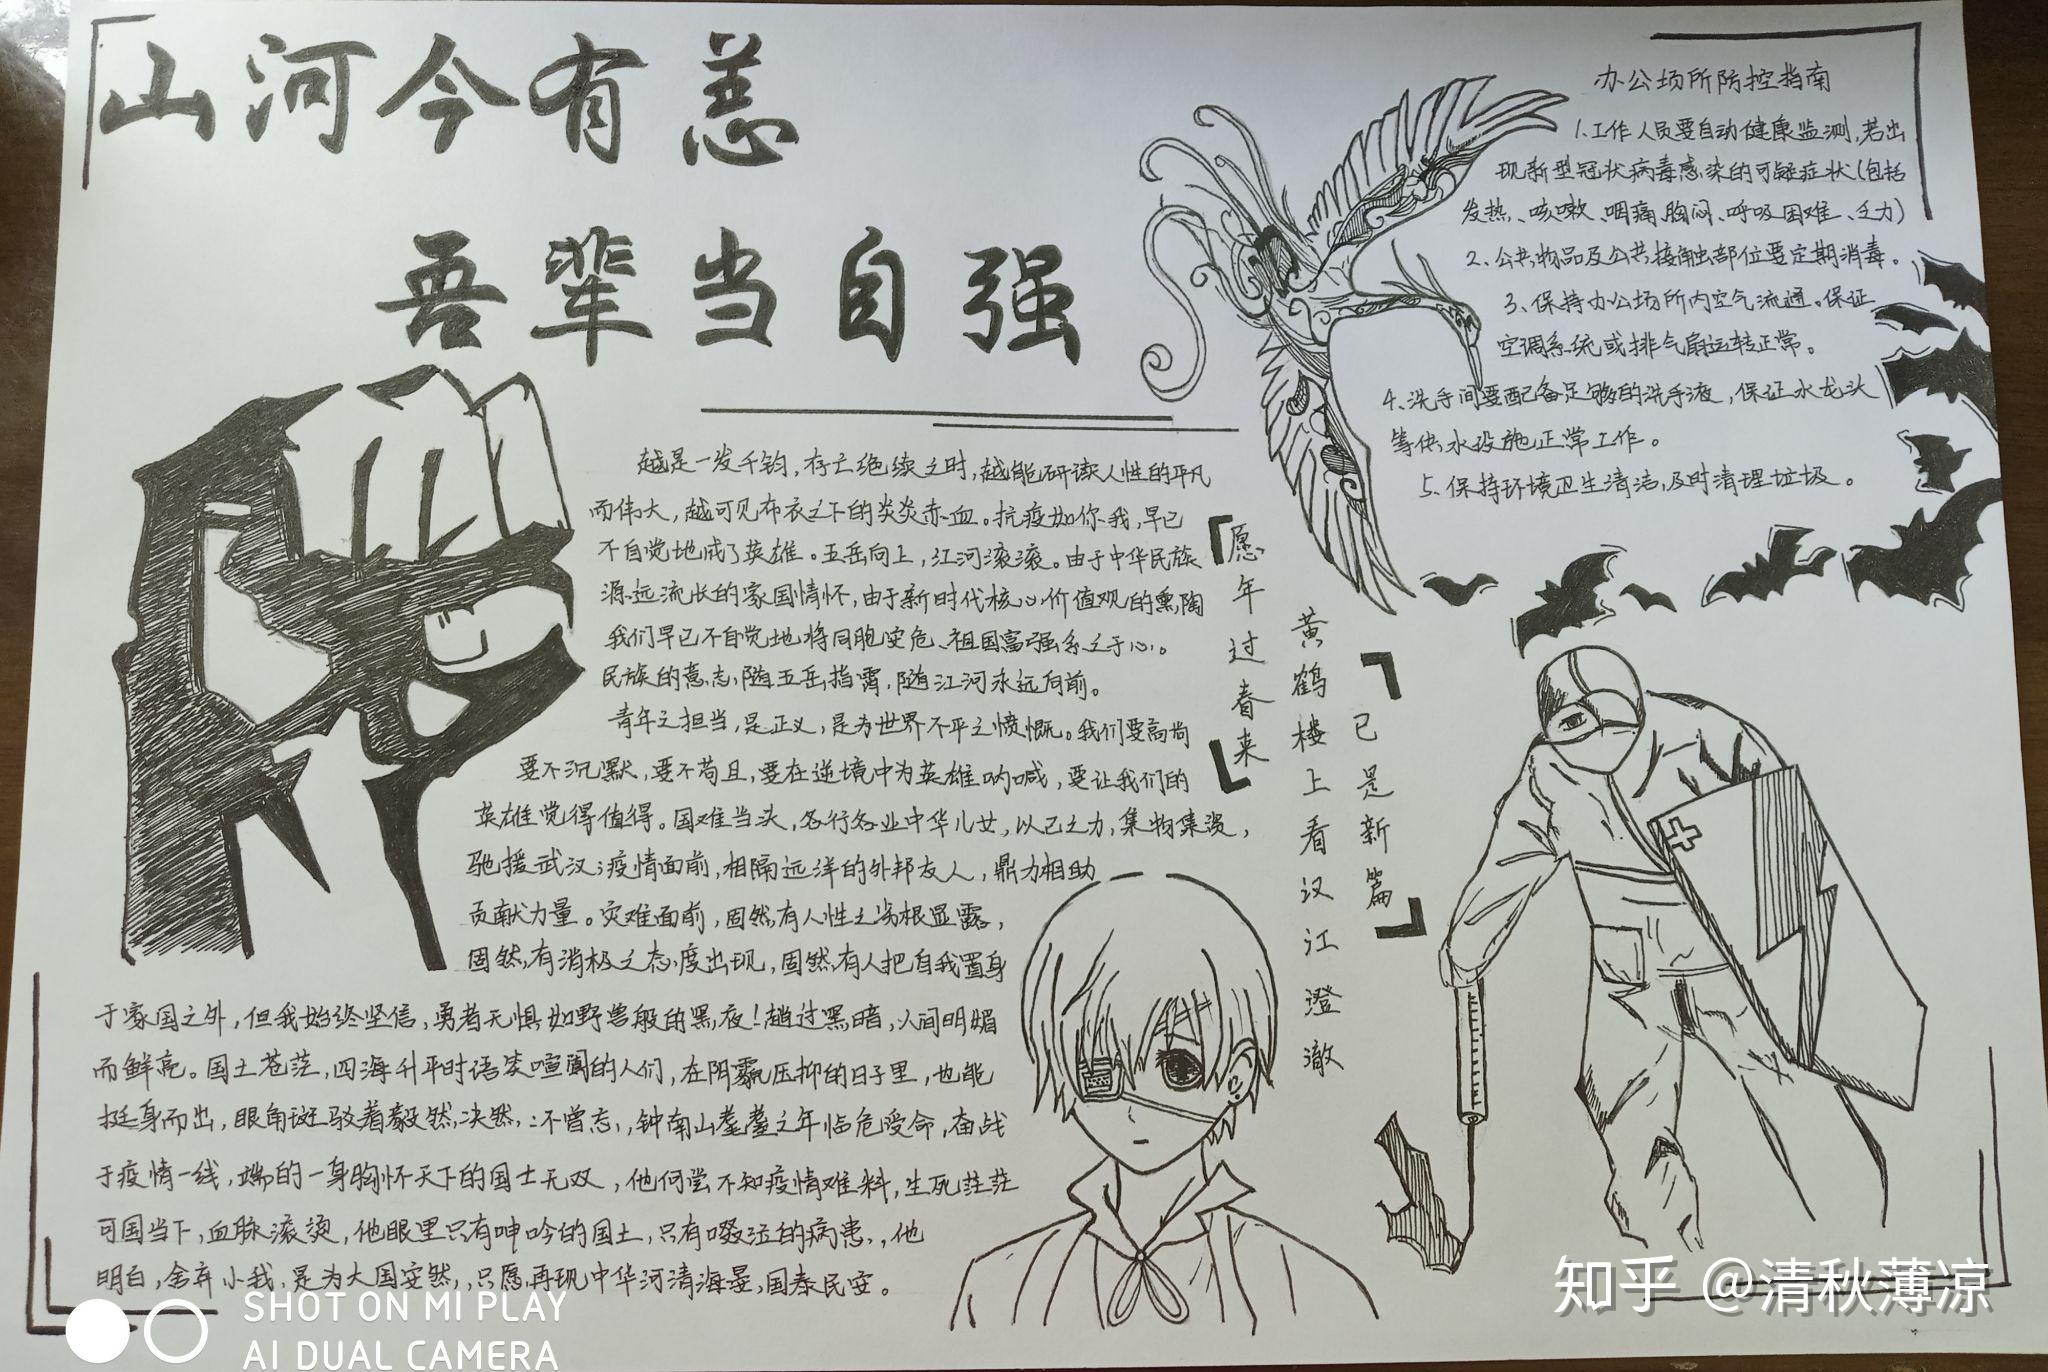 山河今有恙
吾辈当自强
越是一发千钧，存亡绝续之时，越能研读人性的平凡
而伟大，越可见布衣之下的炎炎赤血。抗疫如你我，早已
不自觉地成了英雄。五岳向上，江河滚滚。由于中华民族
源远流长的家国情怀，由于新时代核心价值观的熏陶
我们早已不自觉地将同胞安危、祖国富强系之于心。
民族的意志，随五岳指霄，随江河永远向前。
青年之担当，是正义，是为世界不平之愤慨。我们要高尚
要不沉默，要不苟且，要在逆境中为英雄呐喊，要让我们的
英雄觉得值得。国难当头，各行各业中华儿女，以己之力，集物集资，
驰援武汉；疫情面前，相隔远洋的外邦友人，鼎力相助
贡献力量。灾难面前，固然有人性之劣根显露，
固然有消极之态度出现，固然有人把自我置身
于家国之外，但我始终坚信，勇者无惧如野兽般的黑夜！趟过黑暗，人间明媚
而鲜亮。国土苍茫，四海升平时语笑喧阗的人们，在阴霾压抑的日子里，也能
挺身而出，眼角斑驳着毅然决然，：不曾忘，钟南山耄耋之年临危受命，奋战
于疫情一线，端的一身胸怀天下的国士无双，他何尝不知疫情难料，生死茫茫
可国当下，血脉滚烫，他眼里只有呻吟的国土，只有啜泣的病患，，他
明白，舍弃小我，是为大国安然，，只愿再现中华河清海晏，国泰民安。
「愿年过春来
黄鹤楼上看汉江澄澈
已是新篇」
办公场所防控指南
1、工作人员要自动健康监测，若出
现新型冠状病毒感染的可疑症状（包括
发热、咳嗽、咽痛、胸闷、呼吸困难、乏力）
2、公共物品及公共接触部位要定期消毒。
3、保持办公场所内空气流通。保证
空调系统或排气扇运转正常。
4、洗手间要配备足够的洗手液，保证水龙头
等供水设施正常工作。
5、保持环境卫生清洁，及时清理垃圾。
知乎 @清秋薄凉
SHOT ON MI PLAY
AI DUAL CAMERA